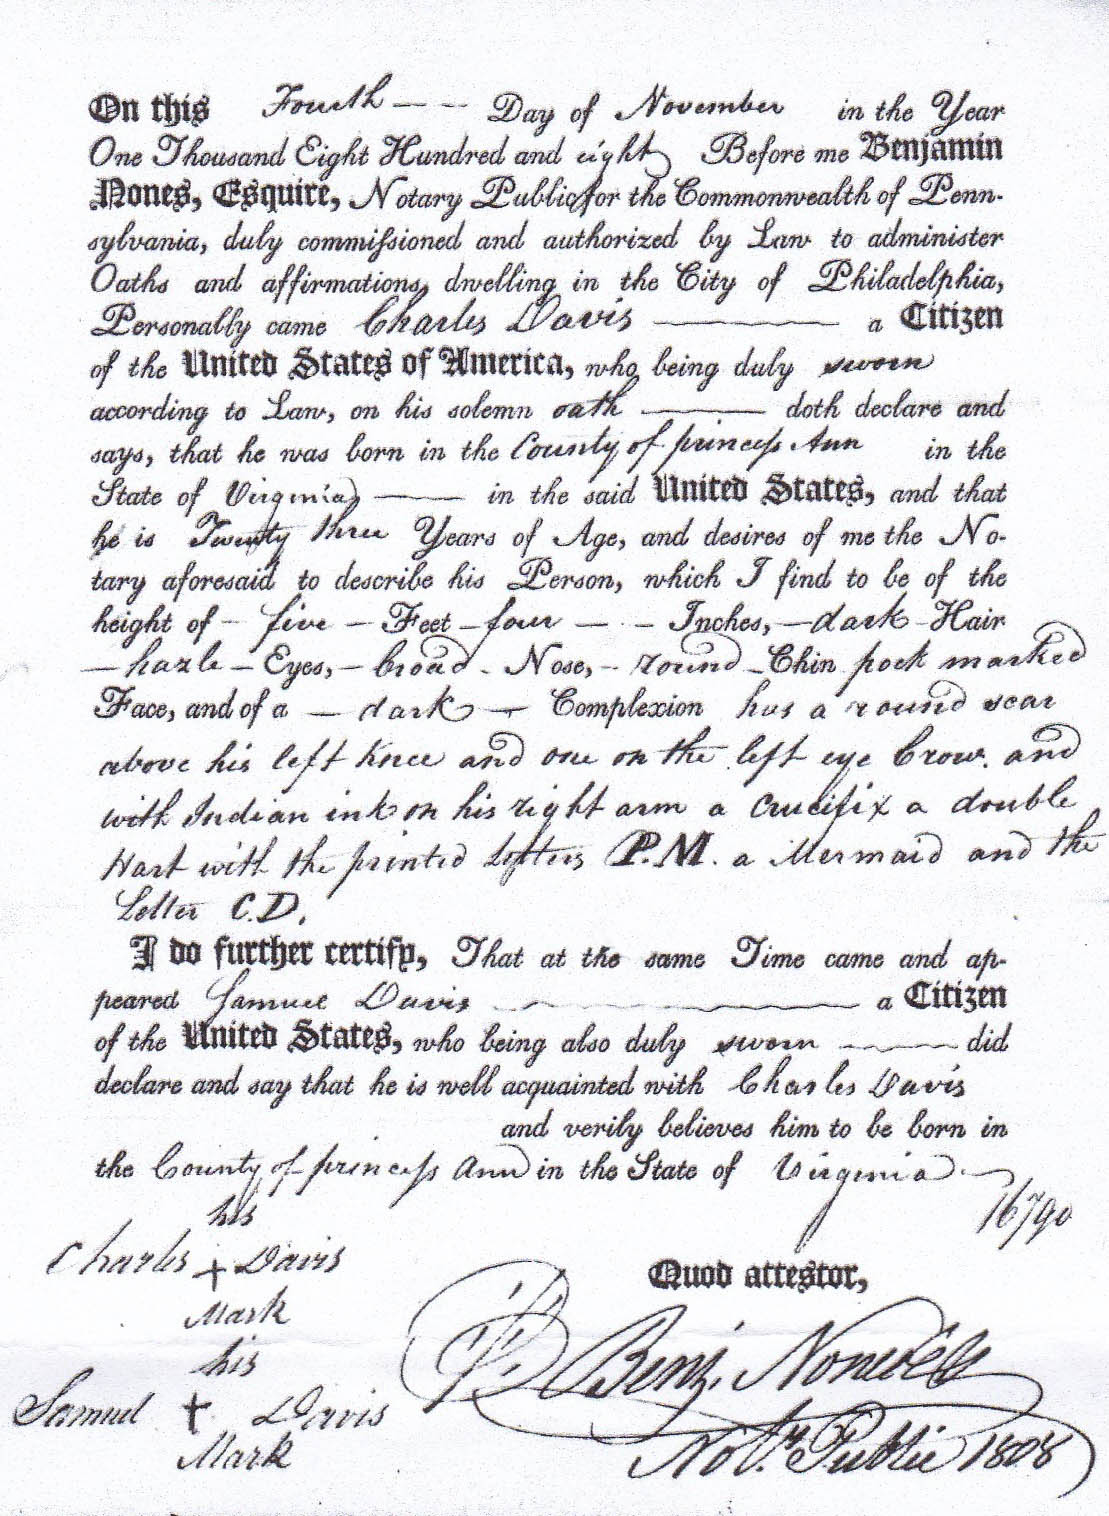 On this Fourth — - - Day of November in the Year
One Thousand Eight Hundred and eight Before me Benjamin
Nones, Esquire, Notary Public for the Commonwealth of Penn-
sylvania, duly commiſsioned and authorized by Law to administer
Oaths and affirmations, dwelling in the City of Philadelphia,
Personally came Charles Davis — a Citizen
of the United States of America, who being duly sworn
according to Law, on his solemn oath — doth declare and
says, that he was born in the County of princeſs Ann in the
State of Virginia — in the said United States, and that
he is Twenty three Years of Age, and desires of me the No-
tary aforesaid to describe his Person, which I find to be of the
height of - five - Feet - four - - Inches, - dark - Hair
- hazle - Eyes, - broad - Nose, - round - Chin pock marked
Face, and of a - dark - Complexion has a round scar
above his left Knee and one on the left eye brow. and
with Indian ink on his right arm a Crucifix a double
Hart with the printed Letters P.M. a Mermaid and the
Letter C.D.
I do further certify, That at the same Time came and ap-
peared Samuel Davis — a Citizen
of the United States, who being also duly sworn — did
declare and say that he is well acquainted with Charles Davis
and verily believes him to be born in
the County of princeſs Ann in the State of Virginia —
16790
his
Charles + Davis
Mark
Quod attestor,
his
Samuel + Davis
Mark
Benj. Nones
Not. Public 1808